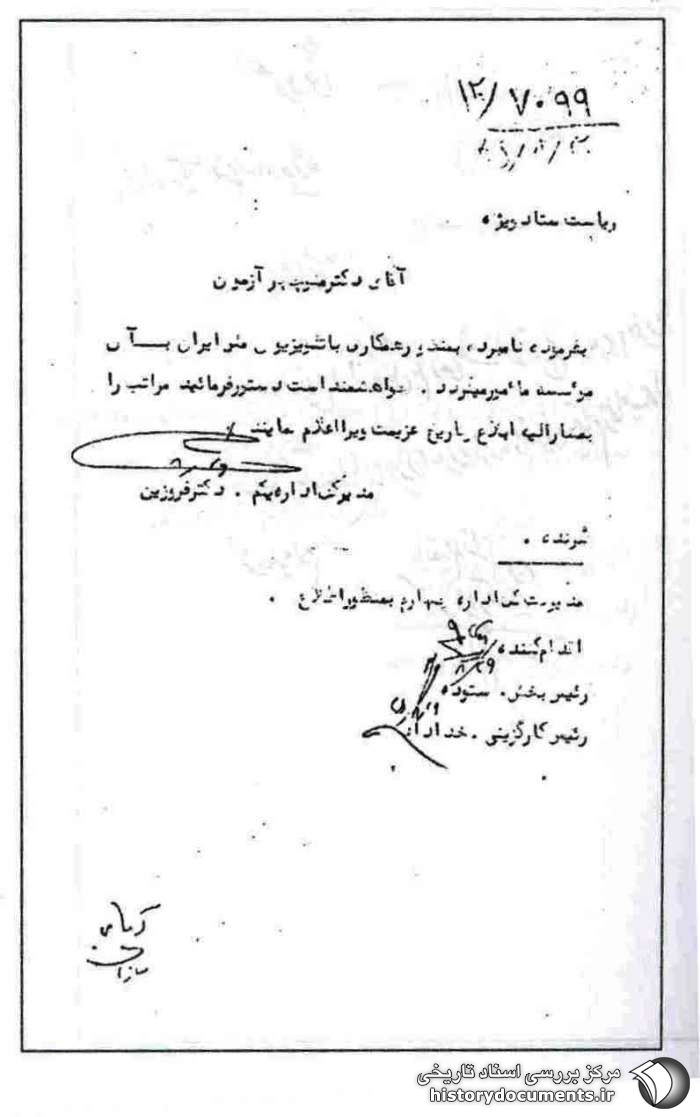 ۱۲/۷۰۹۹
ریاست ستاد ویژه
آقای دکتر منوچهر آزمون
بفرموده نامبرده بمنظور همکاری با تلویزیون ملی ایران بـــه آن
مؤسسه مأمور میگردد . خواهشمند است دستور فرمائید مراتب را
بمشارالیه ابلاغ و تاریخ عزیمت ویرا اعلام نمایند
مدیرکل اداره یکم . دکتر فروزین
گیرنده .
مدیریت کل اداره چهارم بمنظور اطلاع .
اقدام کننده
رئیس بخش . ستوده
رئیس کارگزینی . خدادادی
مرکز بررسی اسناد تاریخی
historydocuments.ir